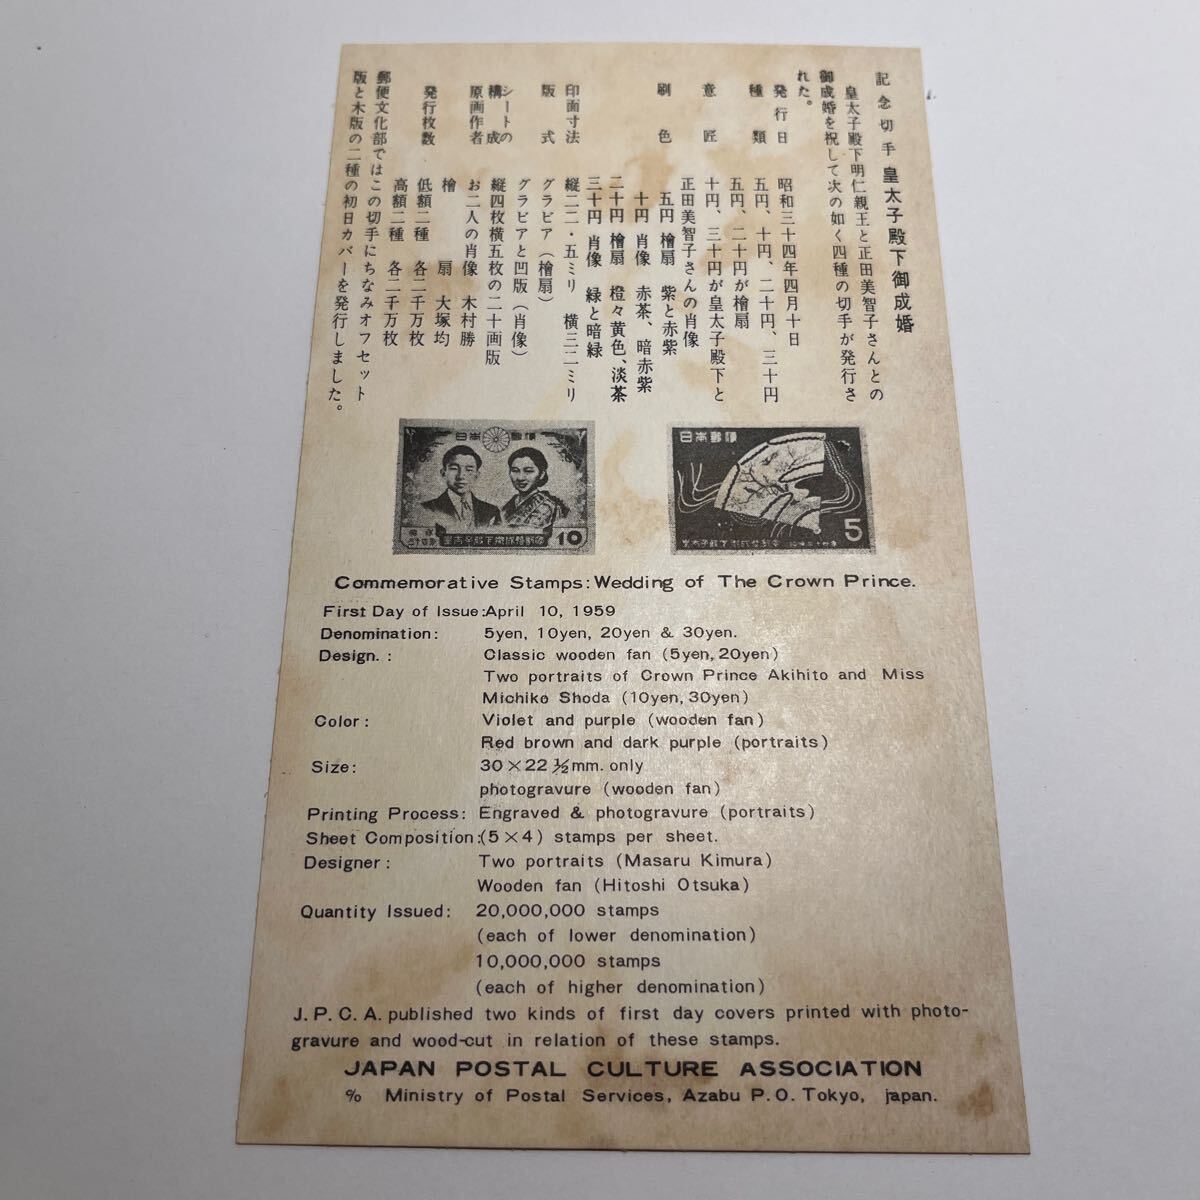 記念切手 皇太子殿下御成婚
皇太子殿下明仁親王と正田美智子さんとの
御成婚を祝して次の如く四種の切手が発行さ
れた。
発行日 昭和三十四年四月十日
種類 五円、十円、二十円、三十円
意匠 五円、二十円が檜扇
十円、三十円が皇太子殿下と
正田美智子さんの肖像
刷色 五円 檜扇 紫と赤紫
十円 肖像 赤茶、暗赤紫
二十円 檜扇 橙々黄色、淡茶
三十円 肖像 緑と暗緑
印面寸法 縦二二・五ミリ 横三二ミリ
版式 グラビア(檜扇)
グラビアと凹版(肖像)
シートの構成 縦四枚横五枚の二十画版
原画作者 お二人の肖像 木村勝
檜扇 大塚均
発行枚数 低額二種 各二千万枚
高額二種 各二千万枚
郵便文化部ではこの切手にちなみオフセット
版と木版の二種の初日カバーを発行しました。
日本郵便
10
日本郵便
5
Commemorative Stamps: Wedding of The Crown Prince.
First Day of Issue: April 10, 1959
Denomination: 5yen, 10yen, 20yen & 30yen.
Design. : Classic wooden fan (5yen, 20yen)
Two portraits of Crown Prince Akihito and Miss
Michiko Shoda (10yen, 30yen)
Color : Violet and purple (wooden fan)
Red brown and dark purple (portraits)
Size: 30×22 ½mm. only
photogravure (wooden fan)
Printing Process: Engraved & photogravure (portraits)
Sheet Composition: (5×4) stamps per sheet.
Designer : Two portraits (Masaru Kimura)
Wooden fan (Hitoshi Otsuka)
Quantity Issued: 20,000,000 stamps
(each of lower denomination)
10,000,000 stamps
(each of higher denomination)
J. P. C. A. published two kinds of first day covers printed with photo-
gravure and wood-cut in relation of these stamps.
JAPAN POSTAL CULTURE ASSOCIATION
% Ministry of Postal Services, Azabu P. O. Tokyo, japan.